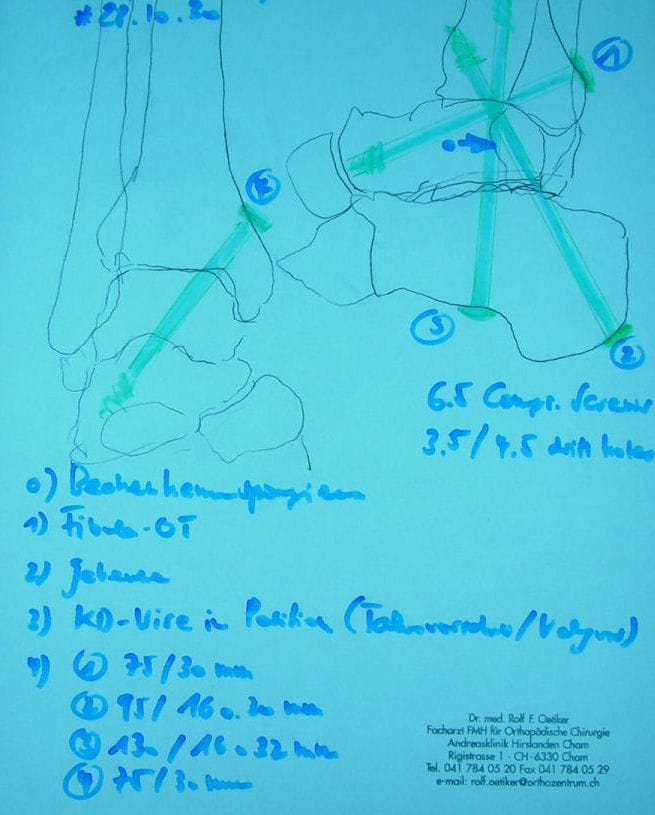 # 28.10.30
①
④
③
②
6.5 Compr. Screws
3.5/4.5 drill holes
0)
1) Fibula-OT
2) Gelenke
3) KD-Wire in Position (Talusvorschub/Valgus)
4) ① 75/30 mm
② 95/16 o. 30 mm
③ 130/16 o. 32 mm
④ 75/30 mm
Dr. med. Rolf F. Oetiker
Facharzt FMH für Orthopädische Chirurgie
Andreasklinik Hirslanden Cham
Rigistrasse 1 · CH-6330 Cham
Tel. 041 784 05 20 Fax 041 784 05 29
e-mail: rolf.oetiker@orthozentrum.ch